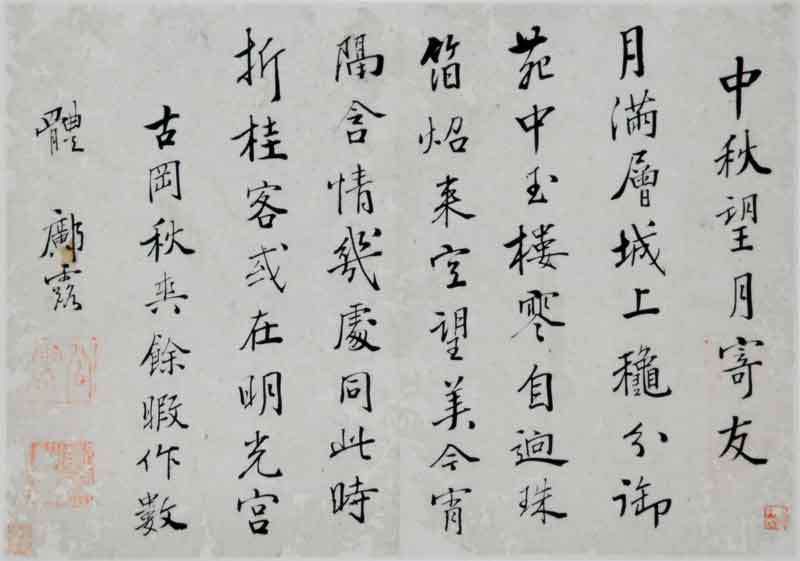 中秋望月寄友
月滿層城上龝分御
苑中玉樓寒自逈珠
箔炤來空望美今宵
隔含情幾處同此時
折桂客或在明光宮
古岡秋爽餘暇作數
體 鄺露